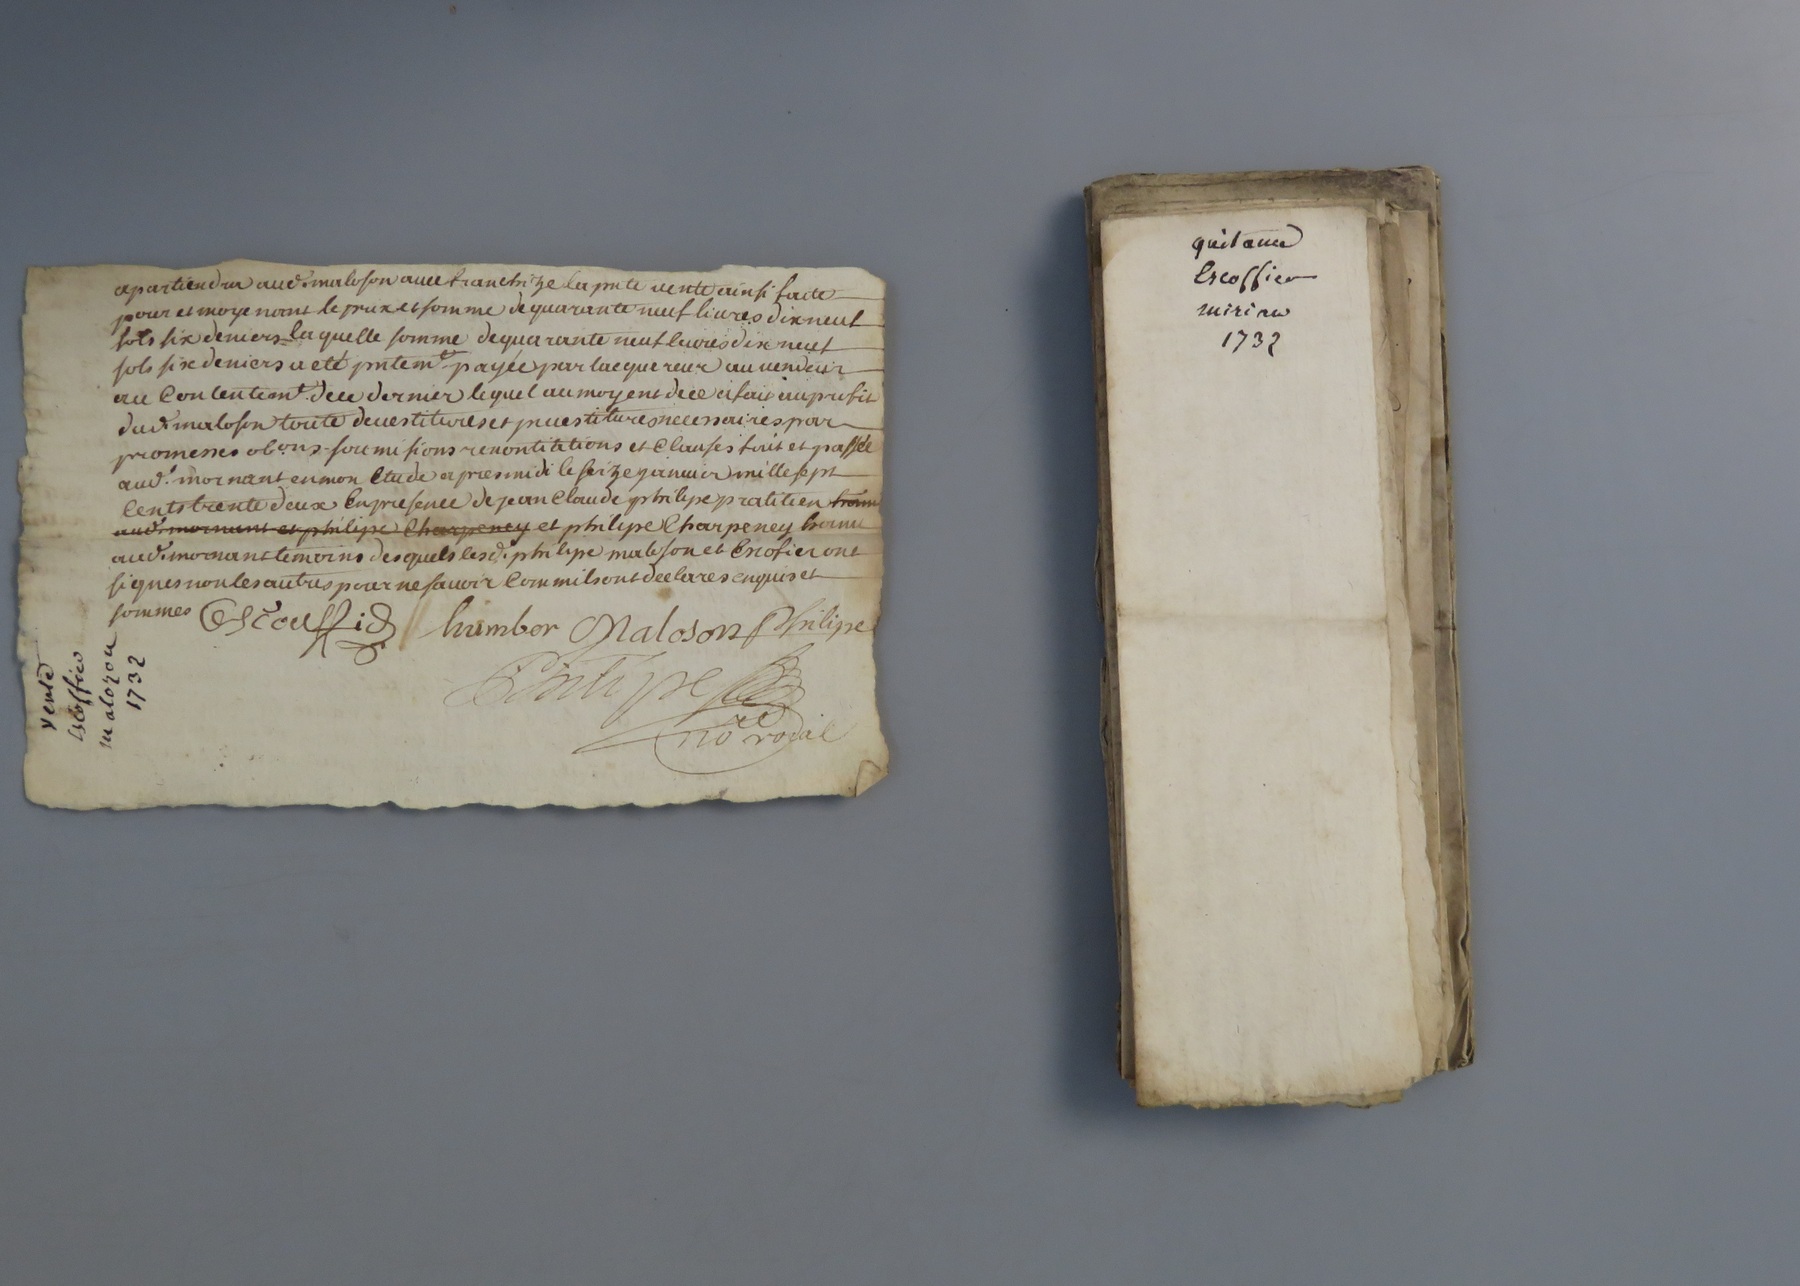 apartiendra aud. maloson avec franchize la pnte vente ainsi faite
pour et moyenant le prix et somme de quarante neuf livres dix neuf
sols six deniers laquelle somme de quarante neuf livres dix neuf
sols six deniers a eté pntemt payée par lacquereur au vendeur
au Contentemt. de ce dernier lequel au moyent de ce a fait au profit
dud. maloson toute devestitures et investitures necessaires par
promesses obons soumisions renontiations et Clauses fait et passée
aud. mornant en mon Etude apres midi le seize janvier mille sept
Cents trente deux En presence de jean Claude philipe pratitien
aud. mornant et philipe Charpeney et philipe Charpeney
aud. mornant temoins desquels lesd. philipe maloson et Escofier ont
signes non les autres pour ne savoir Comm ils ont declares enquis et
sommes Escouffié humber Maloson Philipe
Philipe
no. roial
vente
Escoffier
malozon
1732
quitance
Escoffier
1732